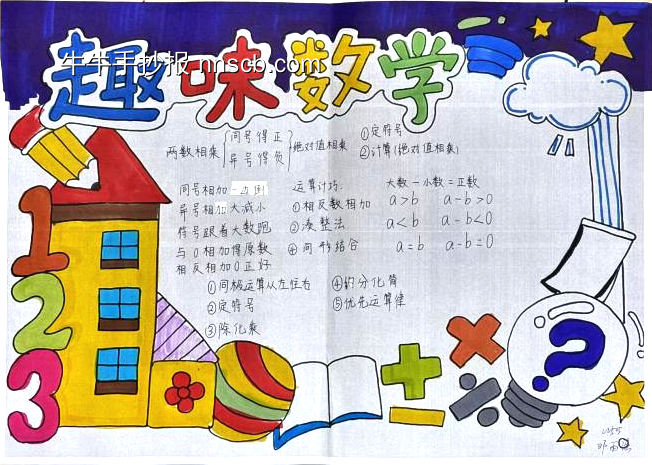 牛牛手抄报 nnscb.com
趣味数学
两数相乘 同号得正 异号得负 绝对值相乘 ①定符号 ②计算(绝对值相乘)
同号相加一边倒
异号相加大减小
符号跟着大数跑
与0相加得原数
相反相加0正好
运算计巧:
①相反数相加
②凑整法
④同形结合
大数-小数=正数
a>b a-b>0
a<b a-b<0
a=b a-b=0
①同板运算从左往右
②定符号
③除化乘
④约分化简
⑤优先运算律
1
2
3
?